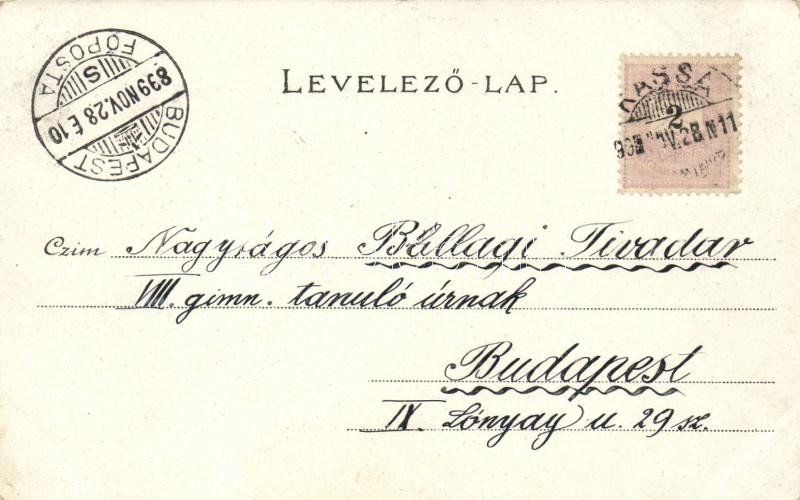 BUDAPEST
FŐPOSTA
S
899 NOV. 28 É 10
LEVELEZŐ-LAP.
KASSA
2
NOV. 28. N 11
Czim Nagyságos Bállagi Tivadar
VIII. gimn. tanuló úrnak
Budapest
IX. Lónyay u. 29 sz.